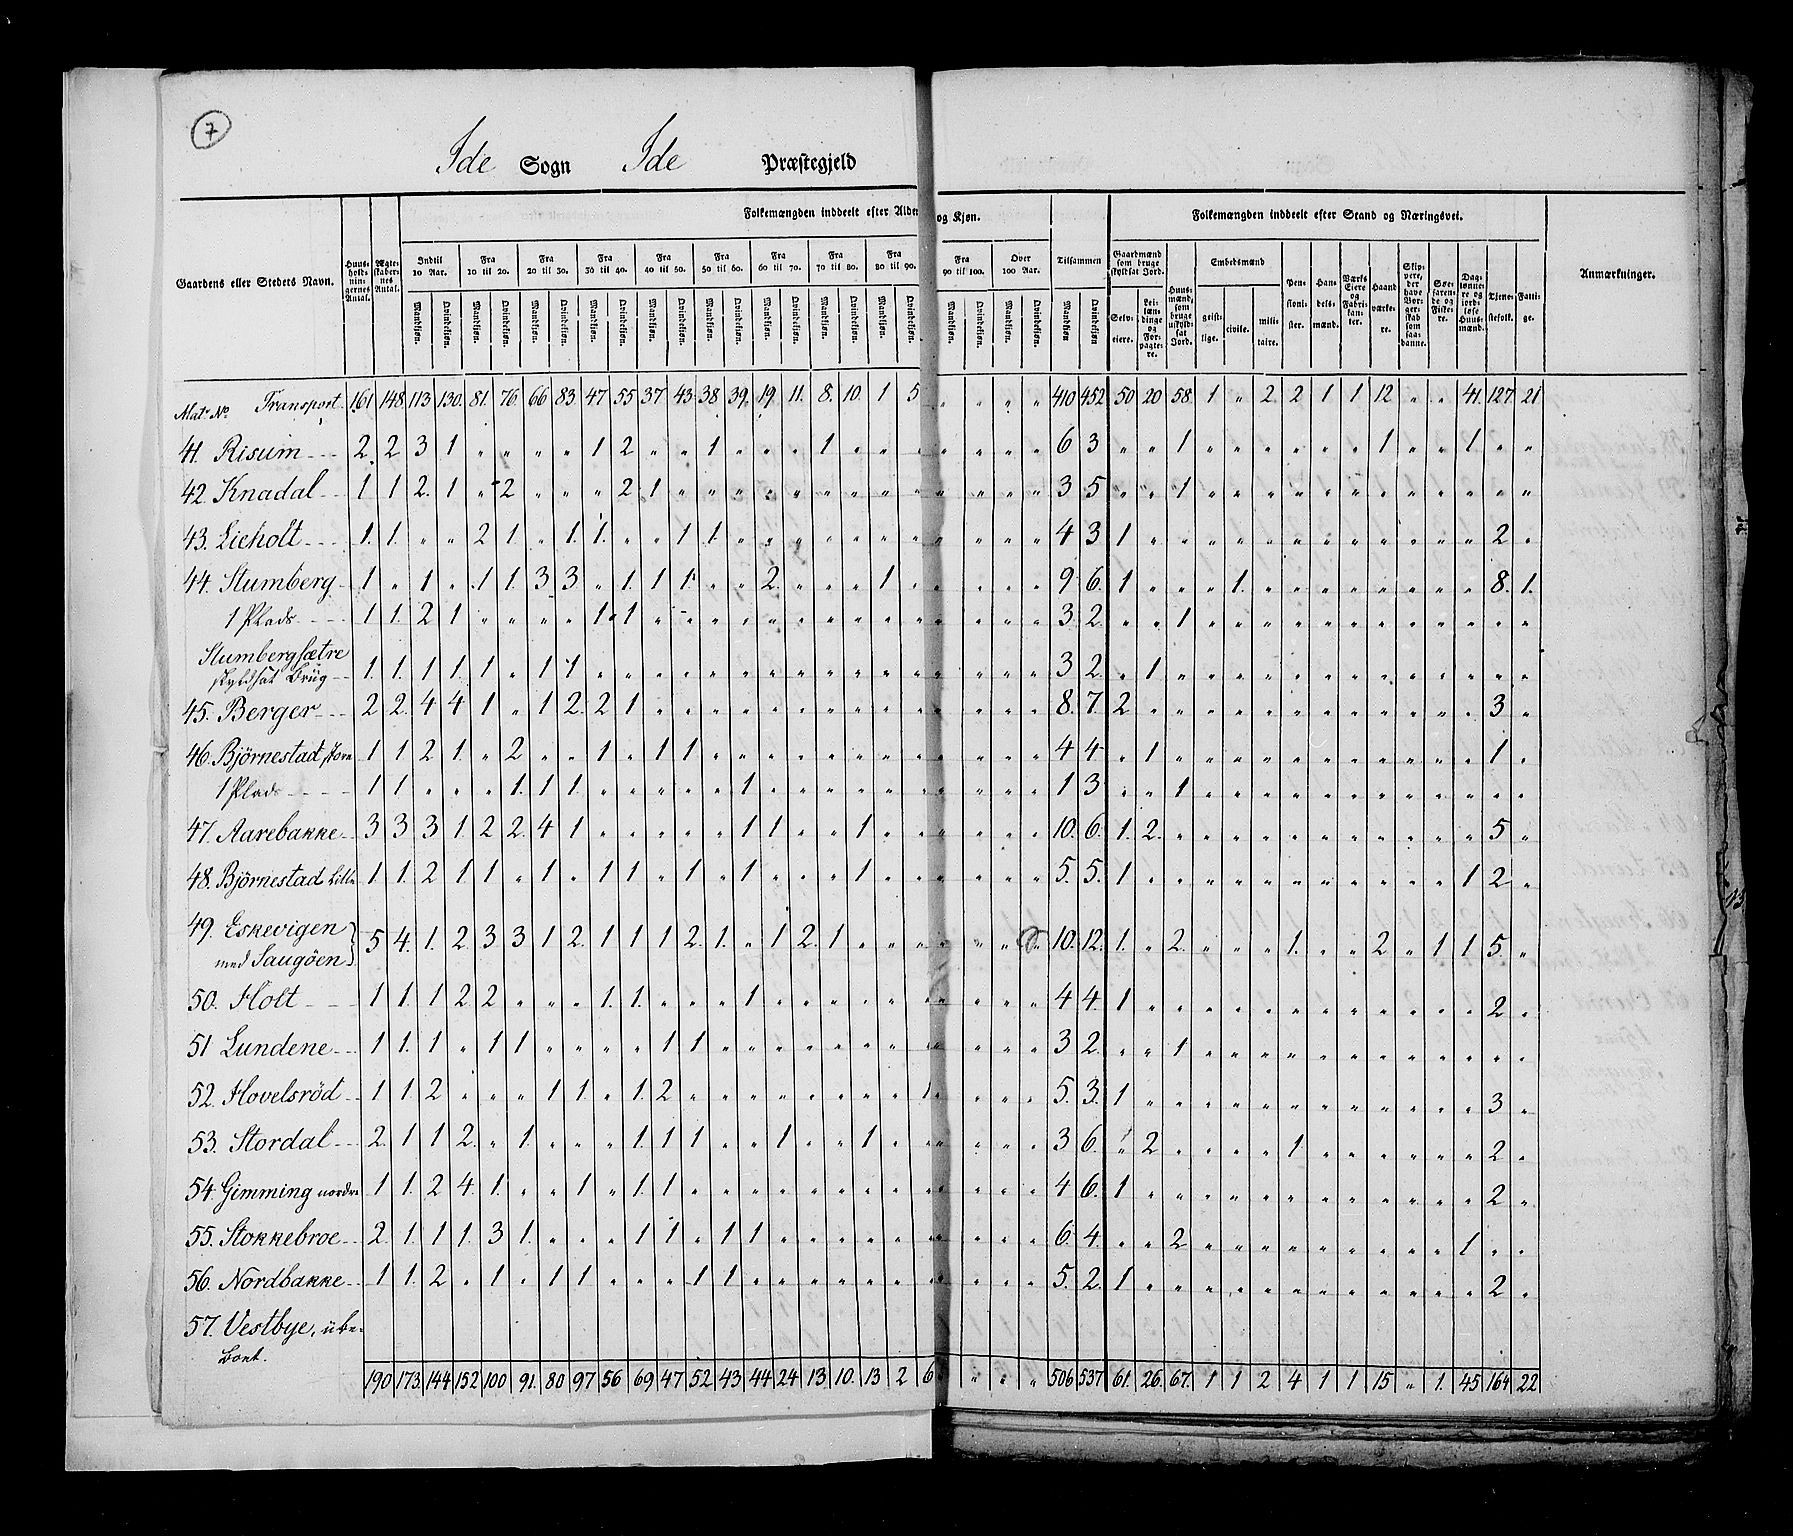 7
Ide Sogn Ide Præstegjeld
Gaardens eller Stedets Navn. Huusholdningernes Antal. Ægteskabernes Antal. Folkemængden inddeelt efter Alder og Kjøn. Tilsammen Folkemængden inddeelt efter Stand og Næringsvei. Anmærkninger.
Indtil 10 Aar. Fra 10 til 20. Fra 20 til 30. Fra 30 til 40. Fra 40 til 50. Fra 50 til 60. Fra 60 til 70. Fra 70 til 80. Fra 80 til 90. Fra 90 til 100. Over 100 Aar. Gaardmænd som bruge skyldsat Jord. Huusmænd, som bruge uskyldsat Jord. Embedsmænd Pensionister. Handelsmænd. Værks Eiere og Fabrikanter. Haandværkere. Skippere, der have Borgerskab som saadanne. Søefarende og Fiskere. Daglønnere og jordløse Huusmænd. Tjenestefolk. Fattige.
Mandkjøn. Qvindekjøn. Mandkjøn. Qvindekjøn. Mandkjøn. Qvindekjøn. Mandkjøn. Qvindekjøn. Mandkjøn. Qvindekjøn. Mandkjøn. Qvindekjøn. Mandkjøn. Qvindekjøn. Mandkjøn. Qvindekjøn. Mandkjøn. Qvindekjøn. Mandkjøn. Qvindekjøn. Mandkjøn. Qvindekjøn. Mandkjøn Qvindekjøn. Selveiere. Leilændinge og Forpagtere. geistlige. civile. militaire.
Matr No. Transport. 161 148 113 130. 81. 76. 66 83 47 55 37 43 38 39. 19. 11. 8. 10. 1 5 " " " " 410 452 50 20 58 1 " 2 2 1 1 12 " " 41. 127 21
41. Risum 2. 2 3 1 " " " " 1 2 " " 1 " " " 1 " " " " " " " 6 3 " " 1 " " " " " " 1 " " 1 " "
42. Knadal 1 1 2. 1 " 2 " " " 2 1 " " " " " " " " " " " " " 3 5 " " 1 " " " " " " " " " " " "
43. Lieholt 1. 1. " " 2 1. " 1. 1. " " 1 1. " " " " " " " " " " " 4 3 1 " " " " " " " " " " " " 2 "
44. Stumberg 1 " 1 " 1 1. 3 3 " 1. 1 1. " " 2 " " " 1 " " " " " 9 6. 1 " " " 1. " " " " " " " " 8. 1.
1 Plads 1 1. 2 1 " " " " 1 1 " " " " " " " " " " " " " " 3 2. " " 1 " " " " " " " " " " " "
Stumbergsætre
skyldsat Brüg 1. 1. 1 1. 1 " 1 1 " " " " " " " " " " " " " " " " 3 2. " 1 " " " " " " " " " " " " "
45. Berger 2 2. 4 4 1 " 1 2. 2 1 " " " " " " " " " " " " " " 8. 7. 2 " " " " " " " " " " " " 3 "
46. Björnestad store 1 1 2 1. " 2 " " 1 " 1 1 " " " " " " " " " " " " 4 4 " 1 " " " " " " " " " " " 1 "
1 Plads 1 1 " " " 1. 1 1. " " " " " 1 " " " " " " " " " " 1 3 " " 1 " " " " " " " " " " " "
47. Aarebakke 3 3 3 1. 2 2. 4 1 " " " " " 1 1 " " 1 " " " " " " 10. 6. 1. 2. " " " " " " " " " " " 5 "
48. Björnestad Lille 1 1. 2 1. 1 " 1. " 1 1 " 1 " 1 " " " 1 " " " " " " 5. 5. 1 " " " " " " " " " " " 1 2 "
49. Eskevigen
med Saugöen 5 4. 1. 2. 3 3 1 2. 1 1 1 2. 1. " 1 2. 1 " " " " " " " 10. 12. 1. " 2. " " " 1. " " 2 " 1 1 5. "
50. Holt 1 1. 1 2 2 " " " 1. 1. " " " 1 " " " " " " " " " " 4 4. 1 " " " " " " " " " " " " 2 "
51 Lundene 1 1. 1 " 1 1 " " " " 1 1 " " " " " " " " " " " " 3 2. " " 1 " " " " " " " " " " " "
52. Hovelsröd 1 1 2 " " " 1 1. " 1. 2 " " " " " " " " 1 " " " " 5. 3. 1 " " " " " " " " " " " " 3 "
53. Stordal 2. 1 1 2. " 1. " " " 1 1 1 " " 1 " " 1. " " " " " " 3 6. " 2 " " " " 1 " " " " " " 2 "
54. Gimming nordre 1 1. 2 4. 1. " " 1 " 1. 1 " " " " " " " " " " " " " 4 6. 1 " " " " " " " " " " " " 2 "
55. Stokkebroe 2. 1 1 1. 3 1. " " " 1 1 " 1 1 " " " " " " " " " " 6. 4. " " 2 " " " " " " " " " 1 " "
56. Nordbakke 1 1. 2 " 1 " 1 1 " " " 1 1 " " " " " " " " " " " 5. 2. 1 " " " " " " " " " " " " 2 "
57. Vestbye, übe-
boet.
190 173. 144 152 100 91. 80 97 56 69 47 52 43 44 24 13 10. 13 2 6 " " " " 506 537 61. 26. 67. 1 1 2 4 1 1 15 " 1. 45 164 22